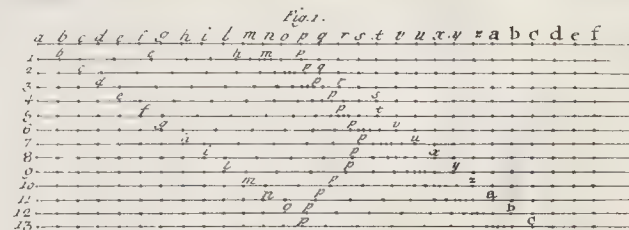 Fig. 1.
a b c d e f g h i l m n o p q r s t v u x y z a b c d e f
1 b g h m p
2 c p q
3 d p r
4 e p s
5 f p t
6 g p v
7 h p u
8 i p x
9 l p y
10 m p z
11 n p a
12 o p b
13 p c